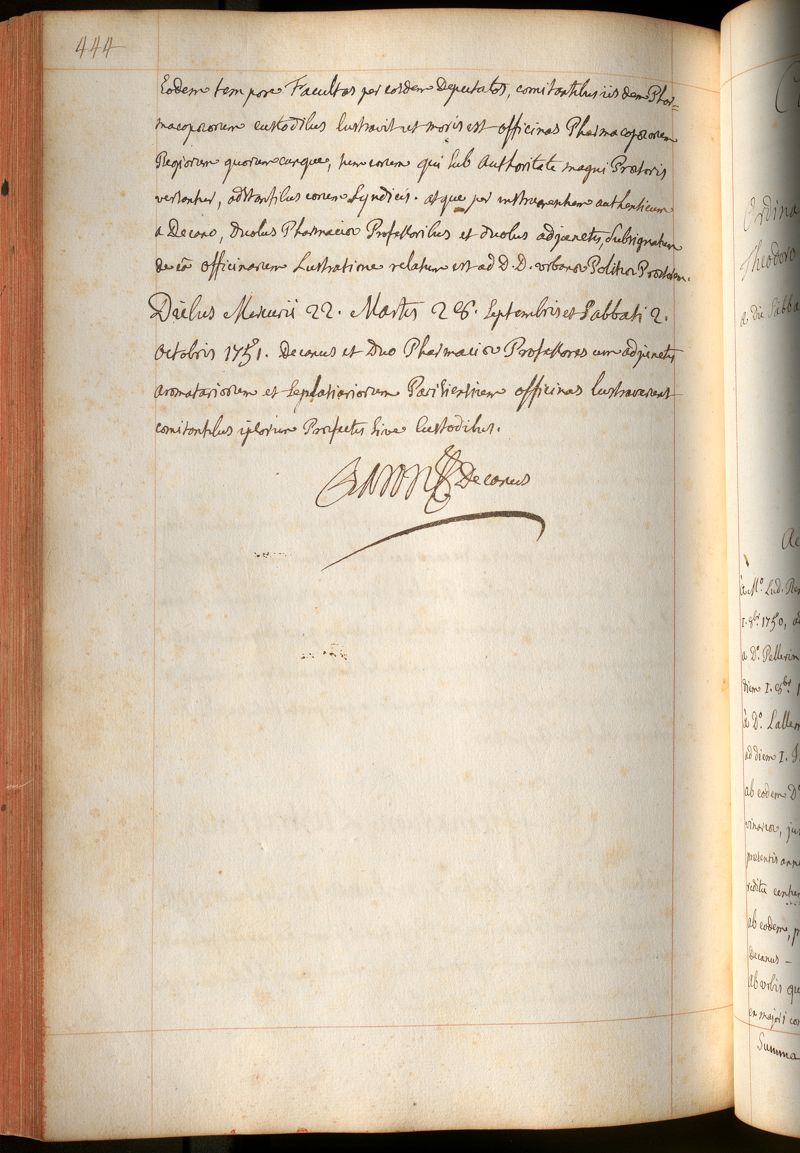 444
Eodem tempore Facultas per eosdem Deputatos, comitantibus iisdem Phar=
macopoeorum custodibus lustravit ut moris est officinas Pharmacopoeorum
Regiorum quorumcunque, nec eorum qui sub Authoritate magni Praetoris
versantur, adstantibus eorum Syndicis. atque per instrumentum authenticum
a Decano, duobus Pharmaciae Professoribus et duobus adjunctis, subsignatum
de eâ officinarum Lustratione relatum est ad D.D. urbanae Politiae Praetorem.
Diebus Mercurii 22. Martis 28. Septembris et Sabbati 2.
octobris 1751. Decanus et Duo Pharmaciae Professores cum adjunctis
aromatariorum et Seplasiariorum Parisiensium officinas lustraverunt
comitantibus ipsorum Praefectis sive Custodibus.
BARON Decanus
Ordina
Theodoro
a die Sabba
à Mo. Lud. Re
1. 8br. 1750, a
a Do. Pellerin
diem 1. 8br 1
à Do. Lallem
ad diem 1. J
ab eodem Do
vinariae, ju
praesentis ann
reditu
ab eodem, p
Decanus -
ab urbis qu
en majori co
Summa